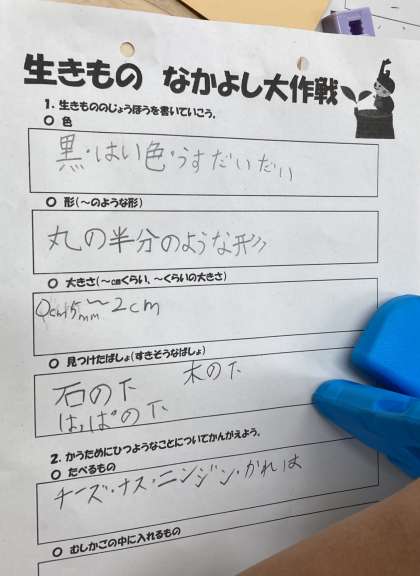 生きもの なかよし大作戦
1. 生きもののじょうほうを書いていこう。
○ 色
黒・はい色・うすだいだい
○ 形(〜のような形)
丸の半分のような形
○ 大きさ(〜cmくらい、〜くらいの大きさ)
0cm5mm〜2cm
○ 見つけたばしょ(すきそうなばしょ)
石の下 木の下
はっぱの下
2. かうためにひつようなことについてかんがえよう。
○ たべるもの
チーズ・ナス・ニンジン・かれは
○ むしかごの中に入れるもの